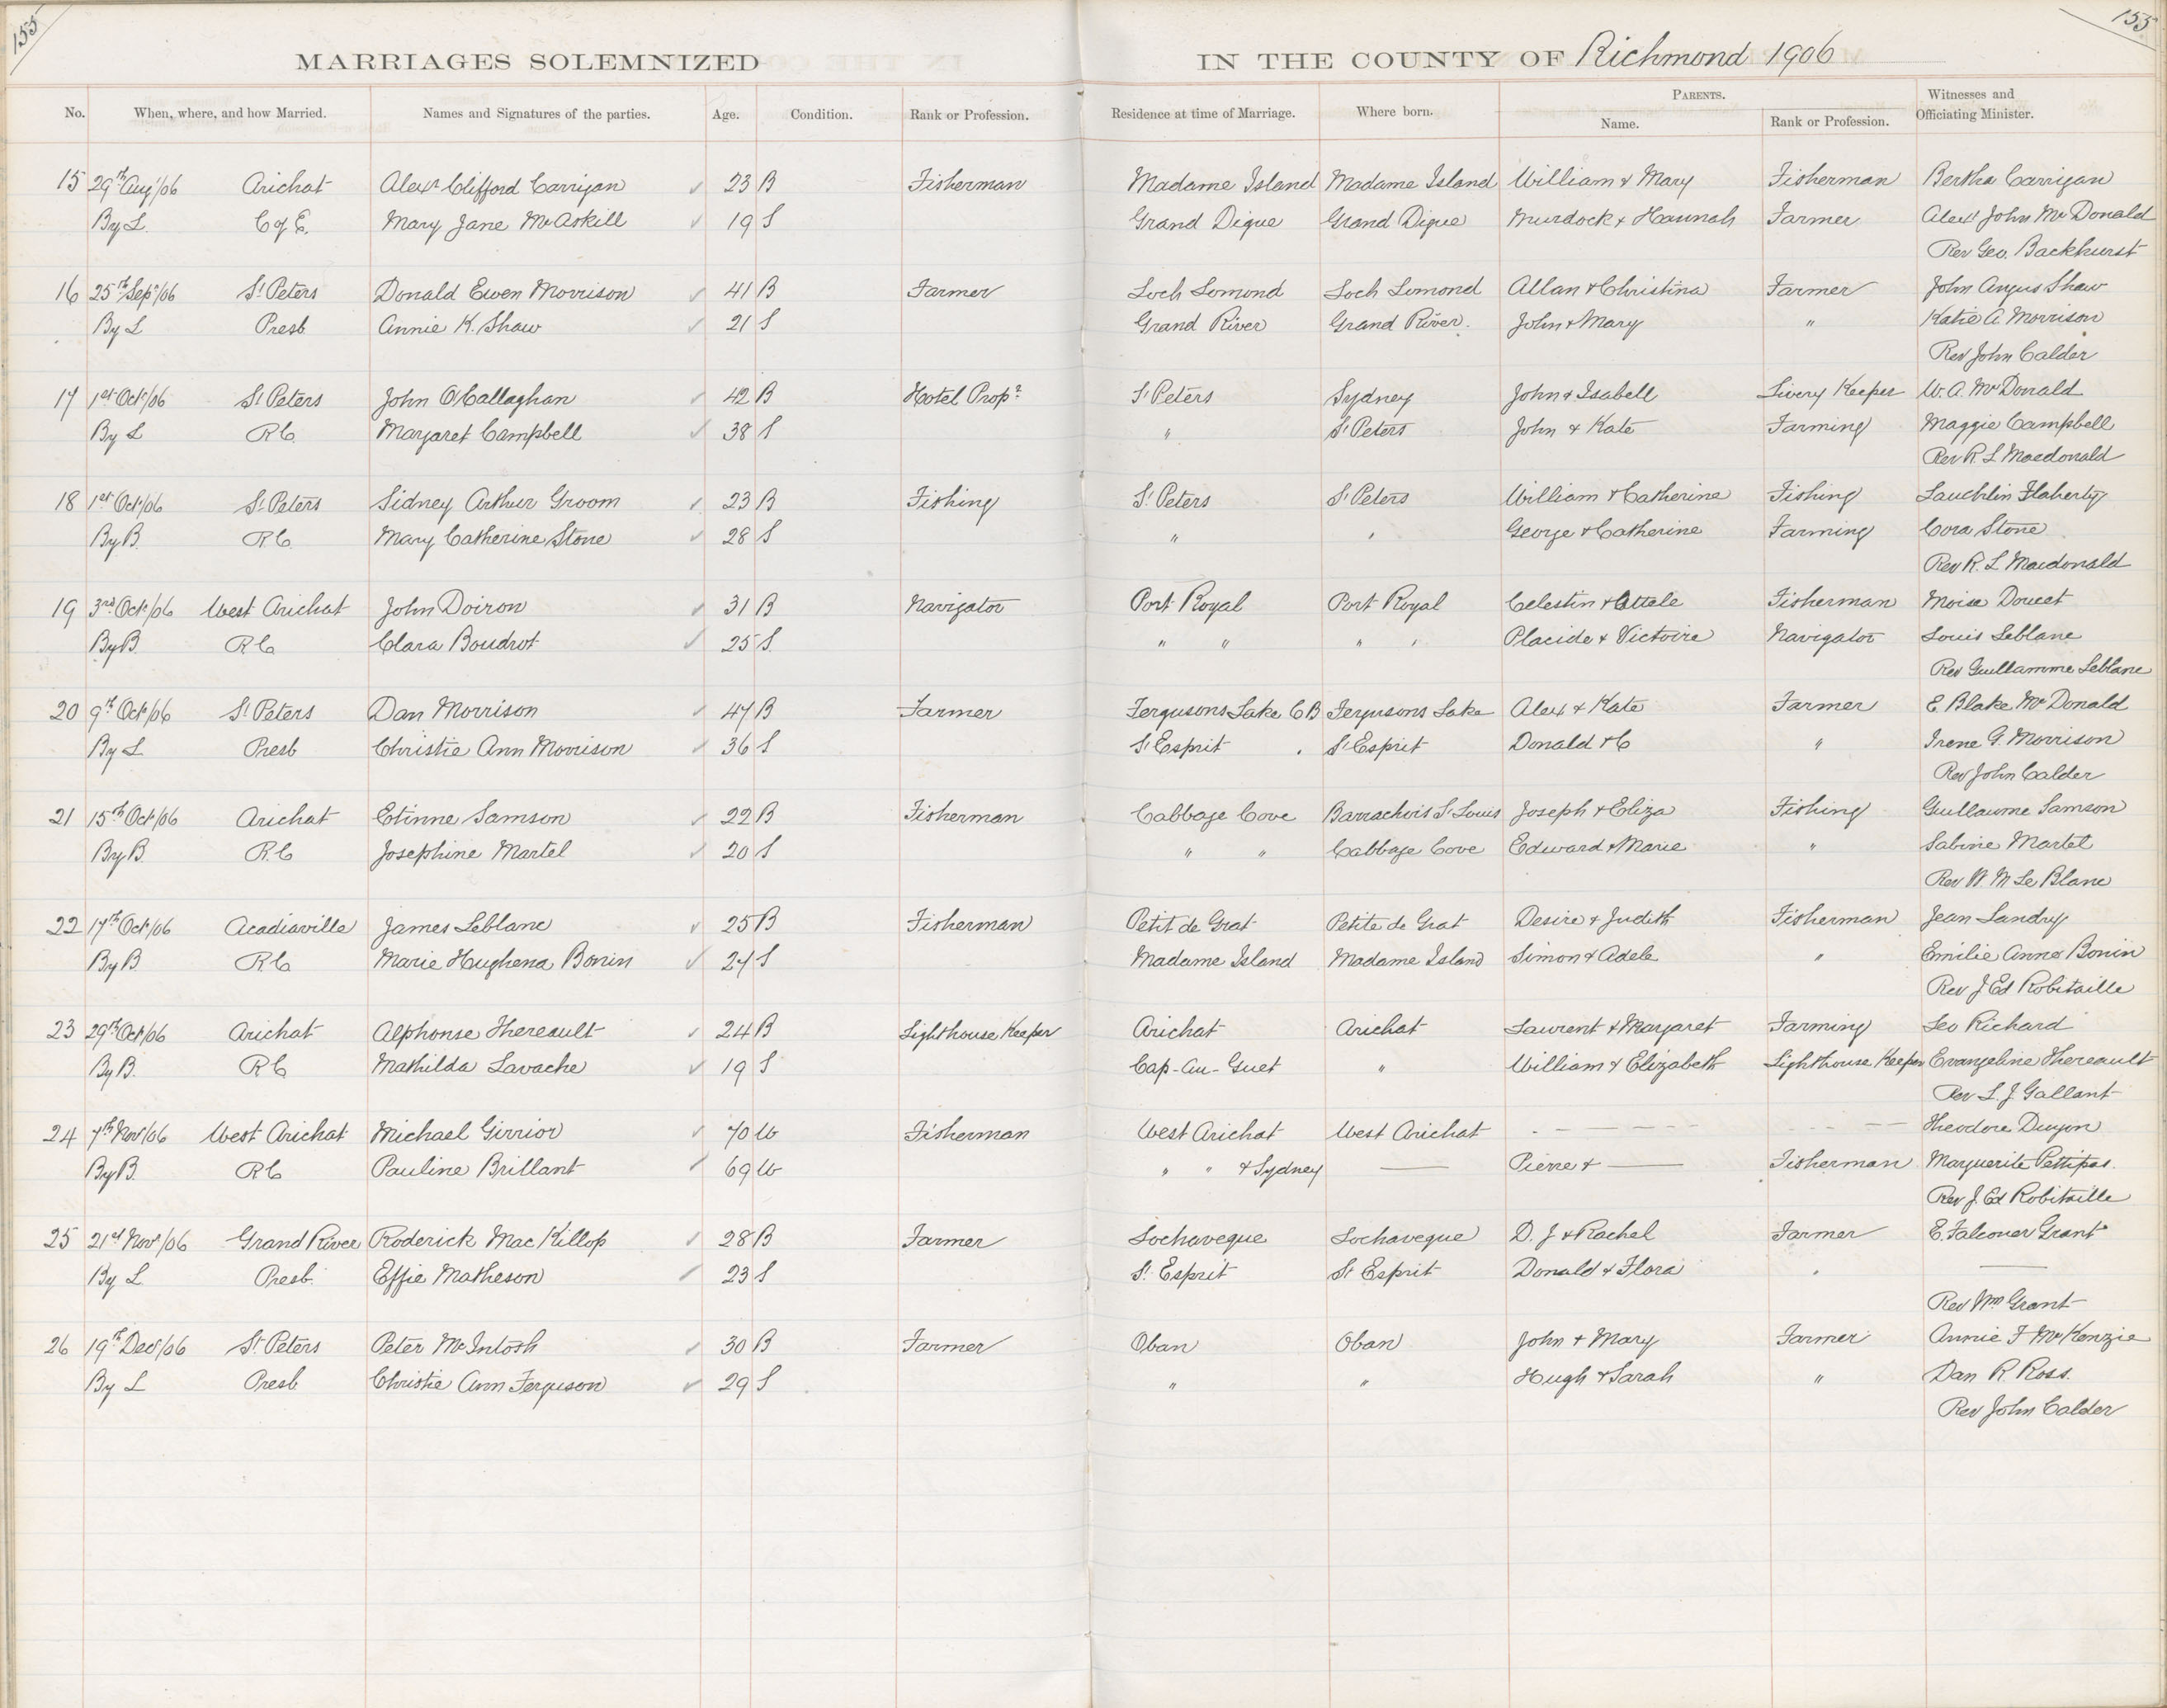 155 155
MARRIAGES SOLEMNIZED IN THE COUNTY OF Richmond 1906
No. When, where, and how Married. Names and Signatures of the parties. Age. Condition. Rank or Profession. Residence at time of Marriage. Where born. PARENTS. Name. Rank or Profession. Witnesses and Officiating Minister.
15 29th Aug/06 Arichat Alexr Clifford Carrigan ✓ 23 B Fisherman Madame Island Madame Island William & Mary Fisherman Bertha Carrigan
By L. C of E. Mary Jane McAskill ✓ 19 S Grand Dique Grand Dique Murdock & Hannah Farmer Alexr John McDonald
Rev Geo. Backhurst
16 25th Sep/06 St Peters Donald Ewen Morrison ✓ 41 B Farmer Loch Lomond Loch Lomond Allan & Christina Farmer John Angus Shaw
By L Presb. Annie K. Shaw ✓ 21 S Grand River Grand River. John & Mary " Katie A. Morrison
Rev John Calder
17 1st Oct/06 St Peters John O'Callaghan ✓ 42 B Hotel Propr St Peters Sydney John & Isabell Livery Keeper W. A. McDonald
By L RC Margaret Campbell ✓ 38 S " St Peters John & Kate Farming Maggie Campbell
Rev R. L Macdonald
18 1st Oct/06 St Peters Sidney Arthur Groom ✓ 23 B Fishing St Peters St Peters William & Catherine Fishing Lauchlin Flaherty
By B. RC Mary Catherine Stone ✓ 28 S " " George & Catherine Farming Cora Stone
Rev R. L Macdonald
19 3rd Oct/06 West Arichat John Doiron ✓ 31 B Navigator Port Royal Port Royal Celestin & Fisherman Moise Doucet
By B. RC Clara Boudrot ✓ 25 S. " " " " Placide & Victoire Navigator Louis Leblanc
Rev Guillamme Leblanc
20 9th Oct/06 St Peters Dan Morrison ✓ 47 B Farmer Fergusons Lake C B Fergusons Lake Alex & Kate Farmer E Blake McDonald
By L Presb Christie Ann Morrison ✓ 36 S St Esprit St Esprit Donald & C " Irene G. Morrison
Rev John Calder
21 15th Oct/06 Arichat Etinne Samson ✓ 22 B Fisherman Cabbage Cove Barrachois St Louis Joseph & Eliza Fishing Guillaume Samson
By B. R.C Josephine Martel ✓ 20 S " " Cabbage Cove Edward & Marie " Sabine Martel
Rev W. M Le Blanc
22 17th Oct/06 Acadiaville James Leblanc ✓ 25 B Fisherman Petit de Grat Petite de Grat Desire & Judith Fisherman Jean Landry
By B RC Marie Hughena Bonin ✓ 24 S Madame Island Madame Island Simon & Adele " Emilie Anne Bonin
Rev J Ed Robitaille
23 29th Oct/06 Arichat Alphonse Thereault ✓ 24 B Lighthouse Keeper Arichat Arichat Laurent & Margaret Farming Leo Richard
By B. RC Mathilda Lavache ✓ 19 S Cap-Au-Guet " William & Elizabeth Lighthouse Keeper Evangeline Thereault
Rev L. J. Gallant
24 7th Nov/06 West Arichat Michael Girrior ✓ 70 W Fisherman West Arichat West Arichat - - - - - - - - - Theodore
By B. RC Pauline Brillant ✓ 69 W " " & Sydney — Pierre & — Fisherman Marguerite Pettipas.
Rev J. Ed Robitaille
25 21st Nov/06 Grand River Roderick MacKillop ✓ 28 B Farmer Lochaveque Lochaveque D. J & Rachel Farmer E. Falconer Grant
By L Presb. Effie Matheson ✓ 23 S St Esprit St Esprit Donald & Flora " —
Rev Wm Grant
26 19th Dec/06 St Peters Peter McIntosh ✓ 30 B Farmer Oban Oban John & Mary Farmer Annie F McKenzie
By L Presb Christie Ann Ferguson ✓ 29 S " " Hugh & Sarah " Dan R. Ross.
Rev John Calder